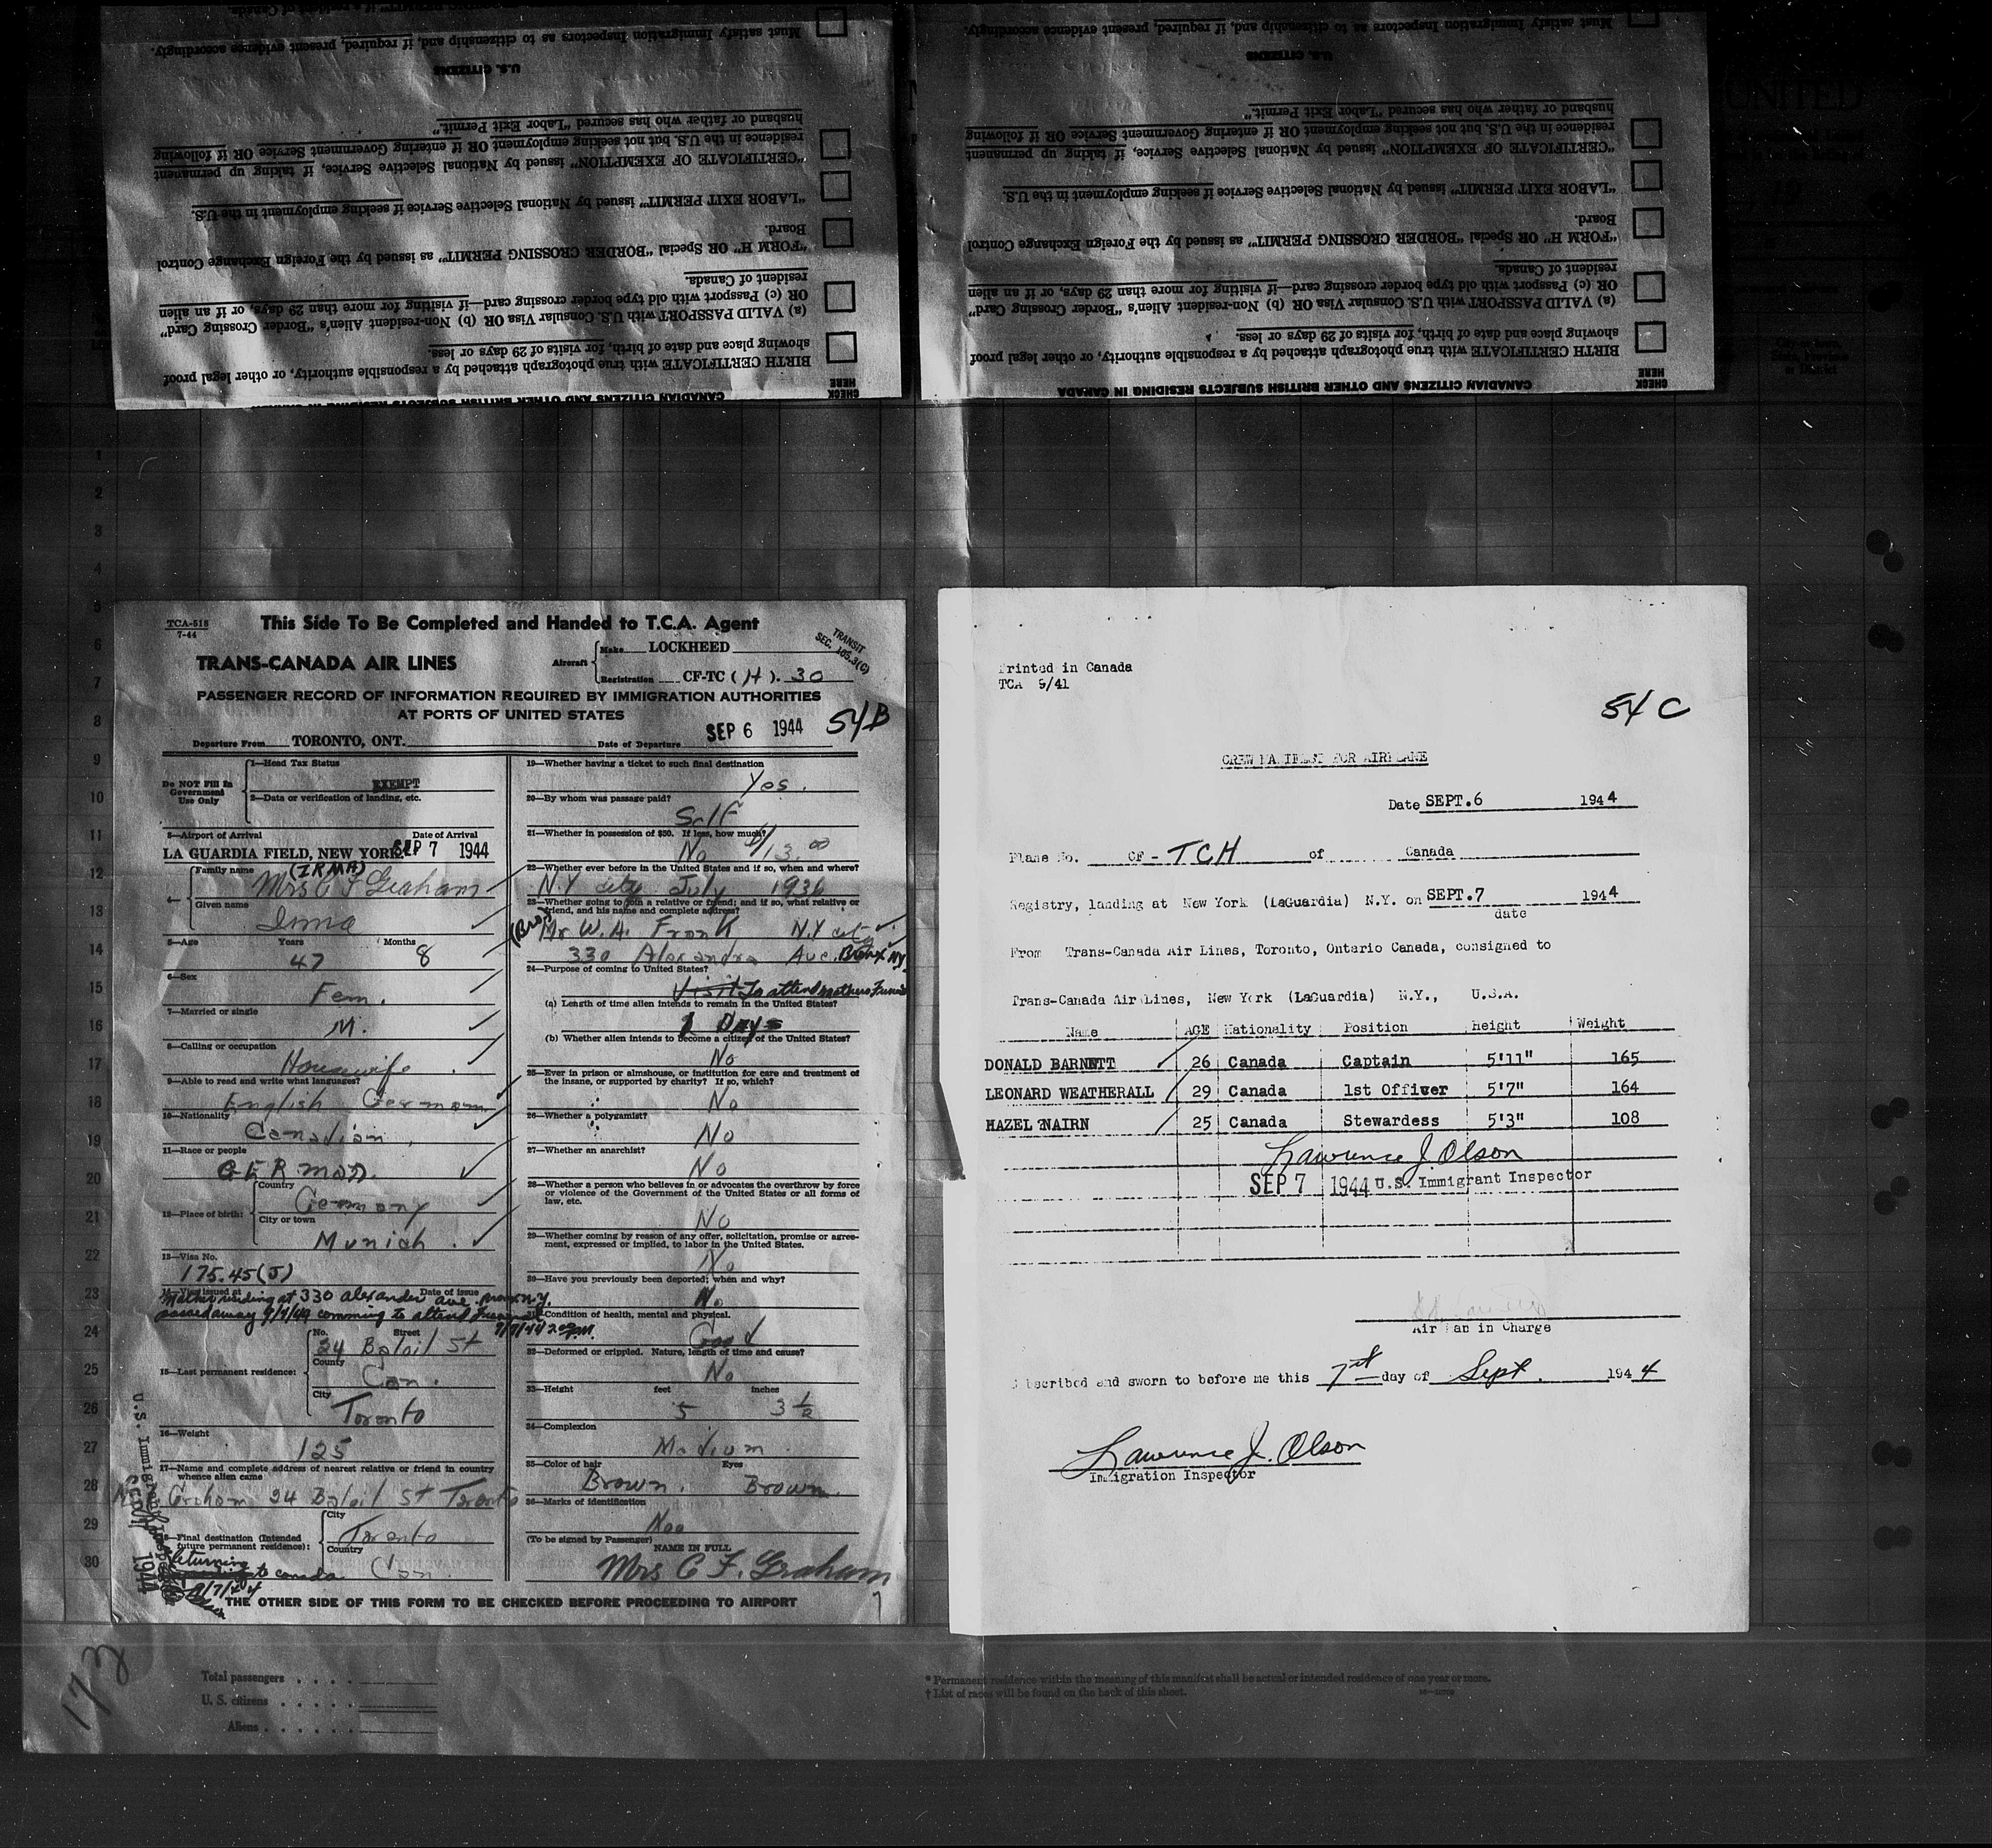 Must satisfy Immigration Inspectors as to citizenship and, if required, present evidence accordingly.
U.S. CITIZENS
husband or father who has secured "Labor Exit Permit."
residence in the U.S. but not seeking employment OR if entering Government Service OR if following
"CERTIFICATE OF EXEMPTION" issued by National Selective Service, if taking up permanent
"LABOR EXIT PERMIT" issued by National Selective Service if seeking employment in the U.S.
Board.
"FORM H" OR Special "BORDER CROSSING PERMIT" as issued by the Foreign Exchange Control
resident of Canada.
OR (c) Passport with old type border crossing card—if visiting for more than 29 days, or if an alien
(a) VALID PASSPORT with U.S. Consular Visa OR (b) Non-resident Alien's "Border Crossing Card"
showing place and date of birth, for visits of 29 days or less.
BIRTH CERTIFICATE with true photograph attached by a responsible authority, or other legal proof
CHECK HERE
CANADIAN CITIZENS AND OTHER BRITISH SUBJECTS RESIDING IN CANADA
Must satisfy Immigration Inspectors as to citizenship and, if required, present evidence accordingly.
U.S. CITIZENS
husband or father who has secured "Labor Exit Permit."
residence in the U.S. but not seeking employment OR if entering Government Service OR if following
"CERTIFICATE OF EXEMPTION" issued by National Selective Service, if taking up permanent
"LABOR EXIT PERMIT" issued by National Selective Service if seeking employment in the U.S.
Board.
"FORM H" OR Special "BORDER CROSSING PERMIT" as issued by the Foreign Exchange Control
resident of Canada.
OR (c) Passport with old type border crossing card—if visiting for more than 29 days, or if an alien
(a) VALID PASSPORT with U.S. Consular Visa OR (b) Non-resident Alien's "Border Crossing Card"
showing place and date of birth, for visits of 29 days or less.
BIRTH CERTIFICATE with true photograph attached by a responsible authority, or other legal proof
CHECK HERE
CANADIAN CITIZENS AND OTHER BRITISH SUBJECTS RESIDING IN CANADA
UNITED
1
2
3
4
5
6
7
8
9
10
11
12
13
14
15
16
17
18
19
20
21
22
23
24
25
26
27
28
29
30
TCA-518
7-44
This Side To Be Completed and Handed to T.C.A. Agent
TRANSIT
SEC. 105.3(C)
TRANS-CANADA AIR LINES
Aircraft
Make LOCKHEED
Registration CF-TC (H). 30
PASSENGER RECORD OF INFORMATION REQUIRED BY IMMIGRATION AUTHORITIES
AT PORTS OF UNITED STATES
54B
Departure From TORONTO, ONT. Date of Departure SEP 6 1944
Do NOT Fill In Government Use Only
1—Head Tax Status
EXEMPT
2—Data or verification of landing, etc.
3—Airport of Arrival Date of Arrival
LA GUARDIA FIELD, NEW YORK. SEP 7 1944
4—
(IRMA)
Family name Mrs C F Graham
Given name Irma
5—Age Years 47 Months 8
6—Sex
Fem.
7—Married or single
M.
8—Calling or occupation
Housewife
9—Able to read and write what languages?
English German
10—Nationality
Canadian
11—Race or people
GERMAN.
12—Place of birth:
Country Germany
City or town
Munich
13—Visa No.
175.45(J)
14—Visa issued at Date of issue
Mother residing at 330 alexander ave. Bronx N.Y.
passed away 9/4/44 comming to attend Funeral
9/7/44 2:00 P.M.
15—Last permanent residence:
No. Street
34 Baloil St
County
Can.
City
Toronto
16—Weight
125
17—Name and complete address of nearest relative or friend in country whence alien came
Graham 34 Baloil St Toronto
18—Final destination (Intended future permanent residence):
City
Toronto
Country
Can.
Returning
to canada
9/7/44
U.S. Immigrant Inspector
SEP 7 1944
19—Whether having a ticket to such final destination
Yes.
20—By whom was passage paid?
Self
21—Whether in possession of $50. If less, how much?
No $13.00
22—Whether ever before in the United States and if so, when and where?
N.Y city July 1936
23—Whether going to join a relative or friend; and if so, what relative or friend, and his name and complete address?
(Bro)
Mr W. A. Frank N.Y city
330 Alexandra Ave. Bronx NY
24—Purpose of coming to United States?
Visit To attend mothers Funeral
(a) Length of time alien intends to remain in the United States?
Days
(b) Whether alien intends to become a citizen of the United States?
No
25—Ever in prison or almshouse, or institution for care and treatment of the insane, or supported by charity? If so, which?
No
26—Whether a polygamist?
No
27—Whether an anarchist?
No
28—Whether a person who believes in or advocates the overthrow by force or violence of the Government of the United States or all forms of law, etc.
No
29—Whether coming by reason of any offer, solicitation, promise or agreement, expressed or implied, to labor in the United States.
No
30—Have you previously been deported; when and why?
No
31—Condition of health, mental and physical.
Good
32—Deformed or crippled. Nature, length of time and cause?
No
33—Height feet inches
5 3 1/2
34—Complexion
Medium
35—Color of hair Eyes
Brown. Brown.
36—Marks of identification
Noo
(To be signed by Passenger) NAME IN FULL
Mrs C F. Graham
THE OTHER SIDE OF THIS FORM TO BE CHECKED BEFORE PROCEEDING TO AIRPORT
Printed in Canada
TCA 9/41
54 C
CREW MANIFEST FOR AIRPLANE
Date SEPT.6 1944
Plane No. CF-TCH of Canada
Registry, landing at New York (LaGuardia) N.Y. on SEPT.7 1944
date
From Trans-Canada Air Lines, Toronto, Ontario Canada, consigned to
Trans-Canada Air Lines, New York (LaGuardia) N.Y., U.S.A.
Name AGE Nationality Position Height Weight
DONALD BARNETT 26 Canada Captain 5'11" 165
LEONARD WEATHERALL 29 Canada 1st Officer 5'7" 164
HAZEL NAIRN 25 Canada Stewardess 5'3" 108
Lawrence J. Olson
SEP 7 1944 U.S. Immigrant Inspector
Air Man in Charge
Subscribed and sworn to before me this 7st day of Sept. 1944
Lawrence J. Olson
Immigration Inspector
172
Total passengers . . . .
U. S. citizens . . . . .
Aliens . . . . . .
* Permanent residence within the meaning of this manifest shall be actual or intended residence of one year or more.
† List of races will be found on the back of this sheet.